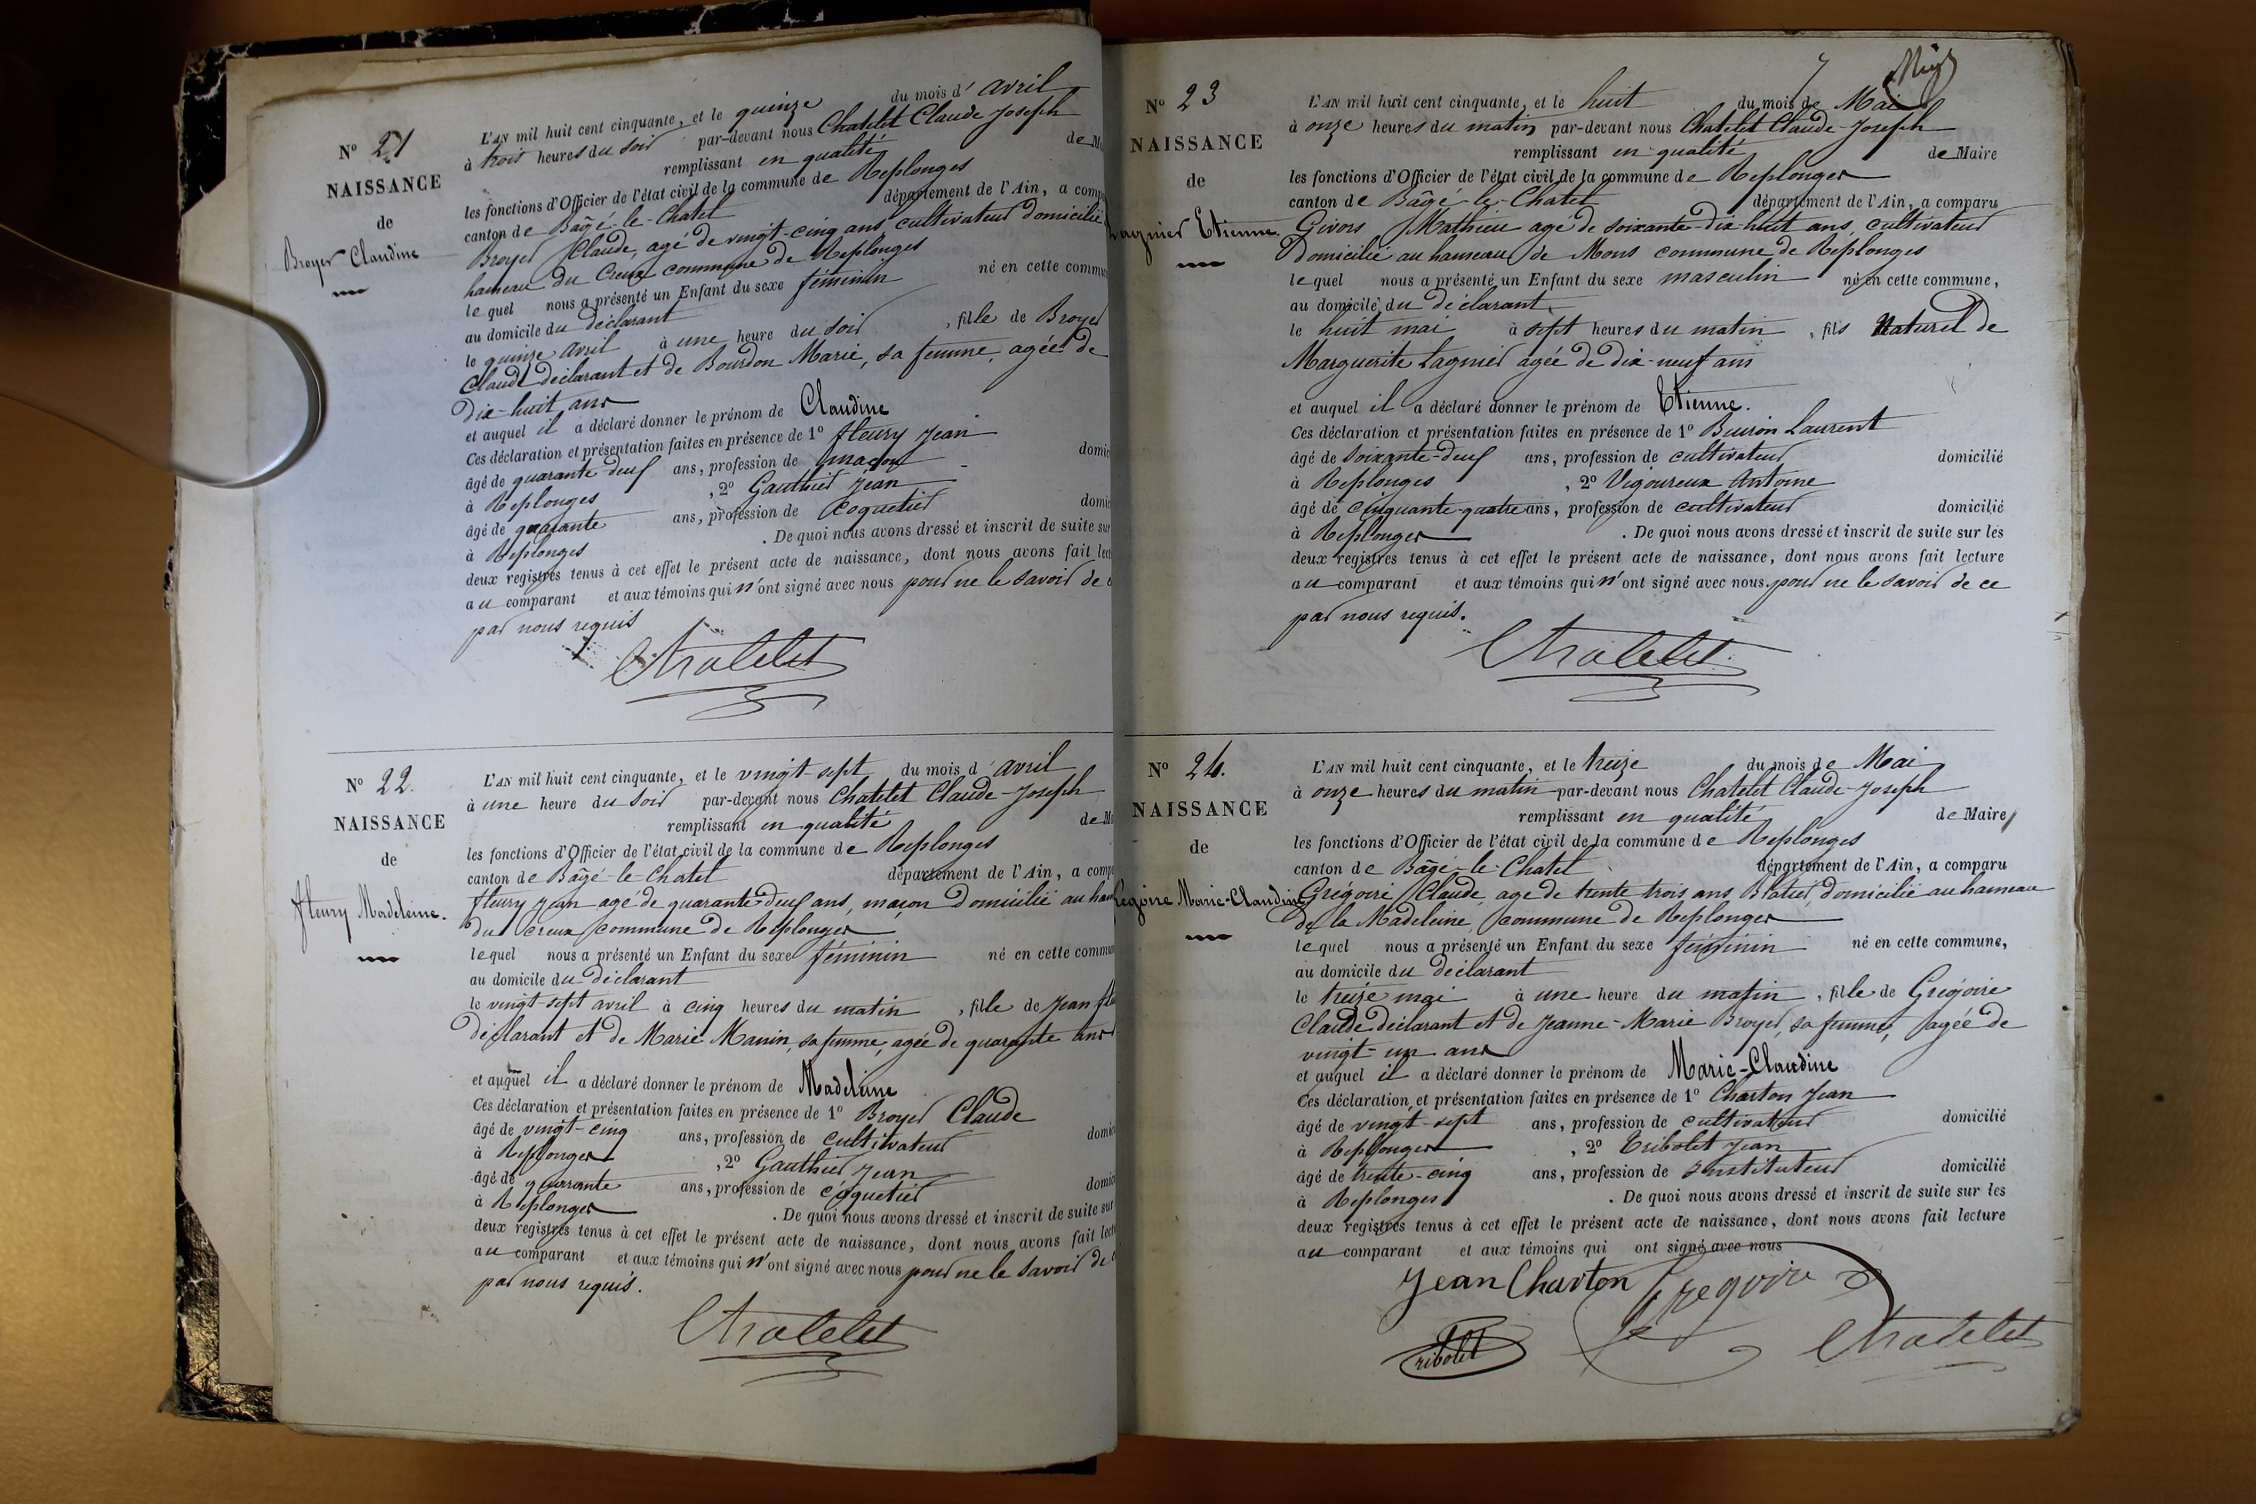 N° 21
NAISSANCE
de
Broyer Claudine
L'AN mil huit cent cinquante, et le quinze du mois d'avril
à trois heures du soir par-devant nous Chatelet Claude Joseph
remplissant en qualité de M
les fonctions d'Officier de l'état civil de la commune de Replonges
canton de Bâgé-le-Chatel département de l'Ain, a comp
Broyer Claude, agé de vingt-cinq ans, cultivateur domicilié
hameau du Creux commune de Replonges
lequel nous a présenté un Enfant du sexe féminin né en cette commu
au domicile du déclarant
le quinze avril à une heure du soir, fille de Broyer
Claude déclarant et de Bourdon Marie, sa femme, agée de
dix-huit ans
et auquel il a déclaré donner le prénom de Claudine
Ces déclaration et présentation faites en présence de 1° fleury Jean
âgé de quarante deux ans, profession de maçon domic
à Replonges, 2° Gauthier Jean
âgé de quarante ans, profession de Coquetier domic
à Replonges. De quoi nous avons dressé et inscrit de suite sur
deux registres tenus à cet effet le présent acte de naissance, dont nous avons fait lec
au comparant et aux témoins qui n'ont signé avec nous pour ne le savoir de
par nous requis
Chatelet
N° 22.
NAISSANCE
de
fleury Madeleine.
L'AN mil huit cent cinquante, et le vingt-sept du mois d'avril
à une heure du soir par-devant nous Chatelet Claude-Joseph
remplissant en qualité de M
les fonctions d'Officier de l'état civil de la commune de Replonges
canton de Bâgé-le-Chatel département de l'Ain, a comp
fleury Jean agé de quarante-deux ans, maçon domicilié au ham
du Creux commune de Replonges
lequel nous a présenté un Enfant du sexe féminin né en cette commu
au domicile du déclarant
le vingt-sept avril à cinq heures du matin, fille de Jean fle
déclarant et de Marie Manin, sa femme, agée de quarante ans
et auquel il a déclaré donner le prénom de Madeleine
Ces déclaration et présentation faites en présence de 1° Broyer Claude
âgé de vingt-cinq ans, profession de cultivateur domic
à Replonges, 2° Gauthier Jean
âgé de quarante ans, profession de coquetier domic
à Replonges. De quoi nous avons dressé et inscrit de suite sur
deux registres tenus à cet effet le présent acte de naissance, dont nous avons fait lect
au comparant et aux témoins qui n'ont signé avec nous pour ne le savoir de
par nous requis.
Chatelet
7
N° 23
NAISSANCE
de
Lagnier Etienne.
L'AN mil huit cent cinquante, et le huit du mois de Mai
à onze heures du matin par-devant nous Chatelet Claude-Joseph
remplissant en qualité de Maire
les fonctions d'Officier de l'état civil de la commune de Replonges
canton de Bâgé-le-Chatel département de l'Ain, a comparu
Givors Mathieu agé de soixante-dix-huit ans, cultivateur
Domicilié au hameau de Mons commune de Replonges
lequel nous a présenté un Enfant du sexe masculin né en cette commune,
au domicile du déclarant
le huit mai à sept heures du matin, fils Naturel de
Marguerite Lagnier agée de dix-neuf ans
et auquel il a déclaré donner le prénom de Etienne.
Ces déclaration et présentation faites en présence de 1° Buiron Laurent
âgé de soixante-deux ans, profession de cultivateur domicilié
à Replonges, 2° Vigoureux Antoine
âgé de cinquante-quatre ans, profession de cultivateur domicilié
à Replonges. De quoi nous avons dressé et inscrit de suite sur les
deux registres tenus à cet effet le présent acte de naissance, dont nous avons fait lecture
au comparant et aux témoins qui n'ont signé avec nous pour ne le savoir de ce
par nous requis.
Chatelet
N° 24.
NAISSANCE
de
Grégoire Marie-Claudine
L'AN mil huit cent cinquante, et le treize du mois de Mai
à onze heures du matin par-devant nous Chatelet Claude-Joseph
remplissant en qualité de Maire
les fonctions d'Officier de l'état civil de la commune de Replonges
canton de Bâgé-le-Chatel département de l'Ain, a comparu
Grégoire Claude, age de trente trois ans, Blatier, domicilié au hameau
de la Madeleine commune de Replonges
lequel nous a présenté un Enfant du sexe féminin né en cette commune,
au domicile du déclarant
le treize mai à une heure du matin, fille de Grégoire
Claude déclarant et de Jeanne-Marie Broyer, sa femme, agée de
vingt-un ans
et auquel il a déclaré donner le prénom de Marie-Claudine
Ces déclaration et présentation faites en présence de 1° Charton Jean
âgé de vingt-sept ans, profession de cultivateur domicilié
à Replonges, 2° Tribolet Jean
âgé de trente-cinq ans, profession de instituteur domicilié
à Replonges. De quoi nous avons dressé et inscrit de suite sur les
deux registres tenus à cet effet le présent acte de naissance, dont nous avons fait lecture
au comparant et aux témoins qui ont signé avec nous
Jean Charton Gregoire
Tribolet Chatelet